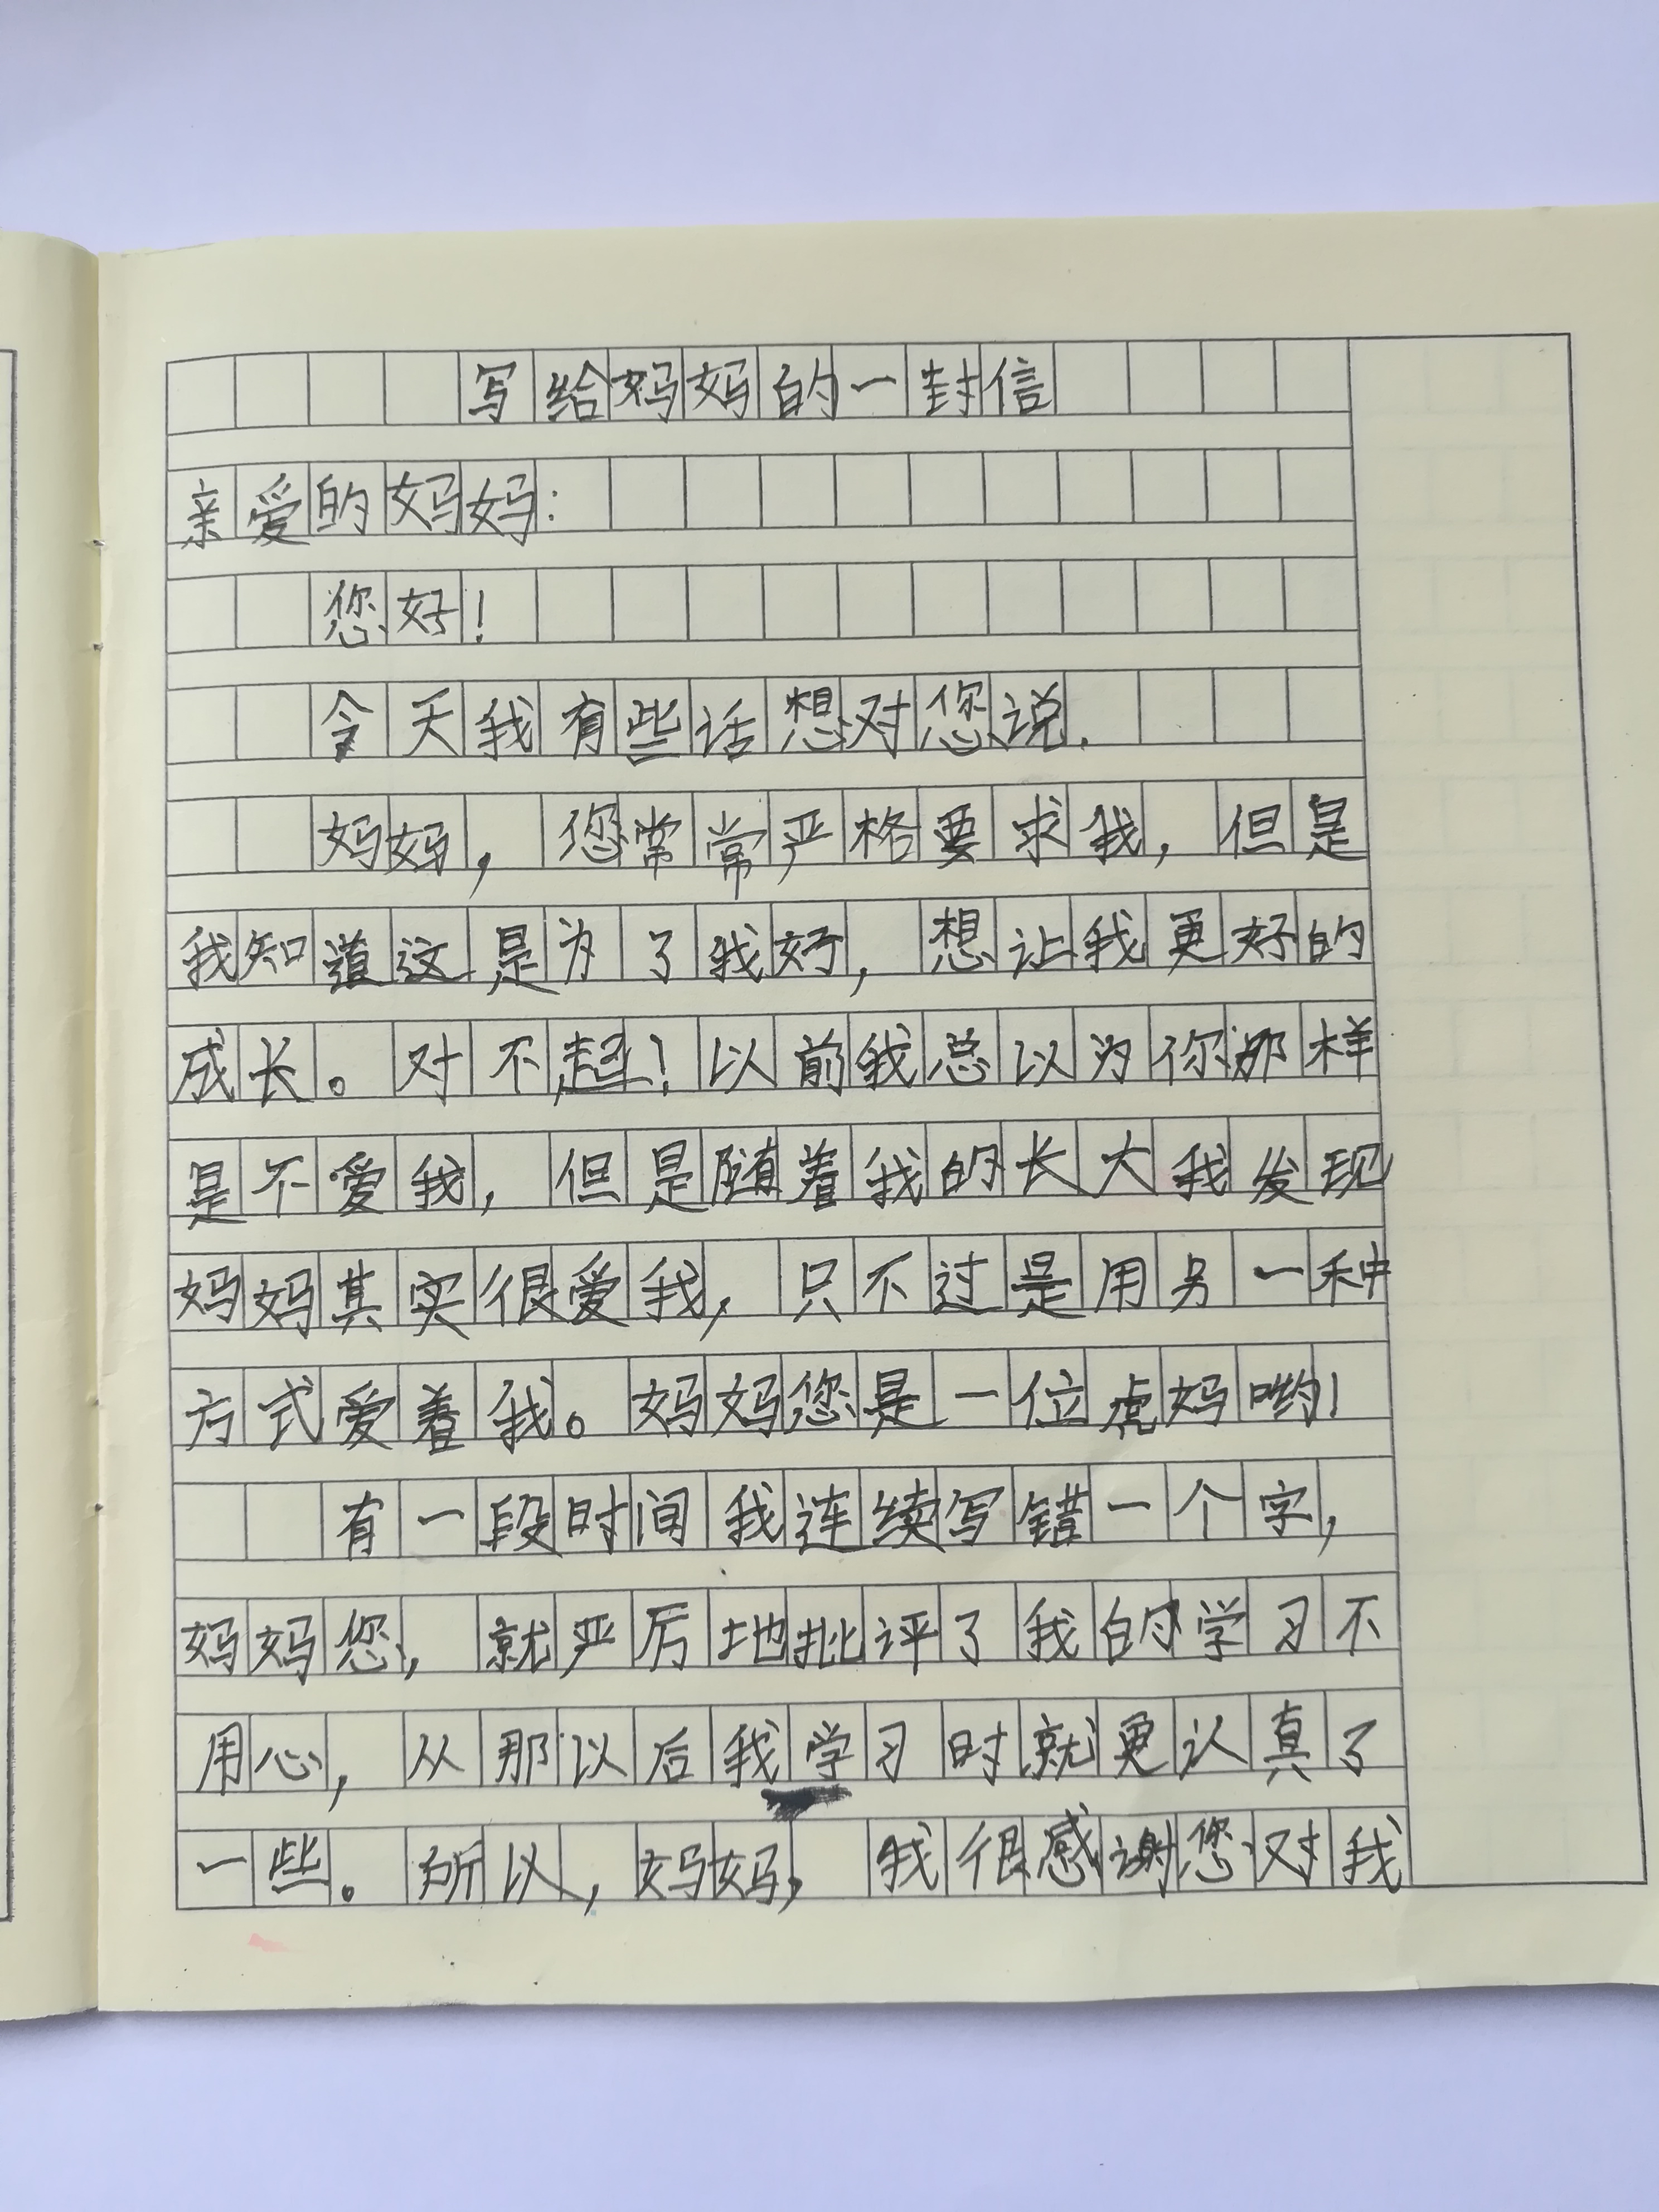 写给妈妈的一封信
亲爱的妈妈：
您好！
今天我有些话想对您说.
妈妈，您常常严格要求我，但是
我知道这是为了我好，想让我更好的
成长。对不起！以前我总以为你那样
是不爱我，但是随着我的长大我发现
妈妈其实很爱我，只不过是用另一种
方式爱着我。妈妈您是一位虎妈哟！
有一段时间我连续写错一个字，
妈妈您，就严厉地批评了我的学习不
用心，从那以后我学习时就更认真了
一些。所以，妈妈，我很感谢您对我